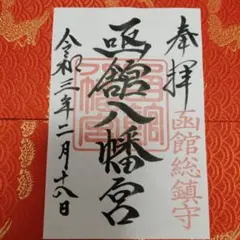 奉拝
函館総鎮守
函館八幡宮
令和三年二月十八日